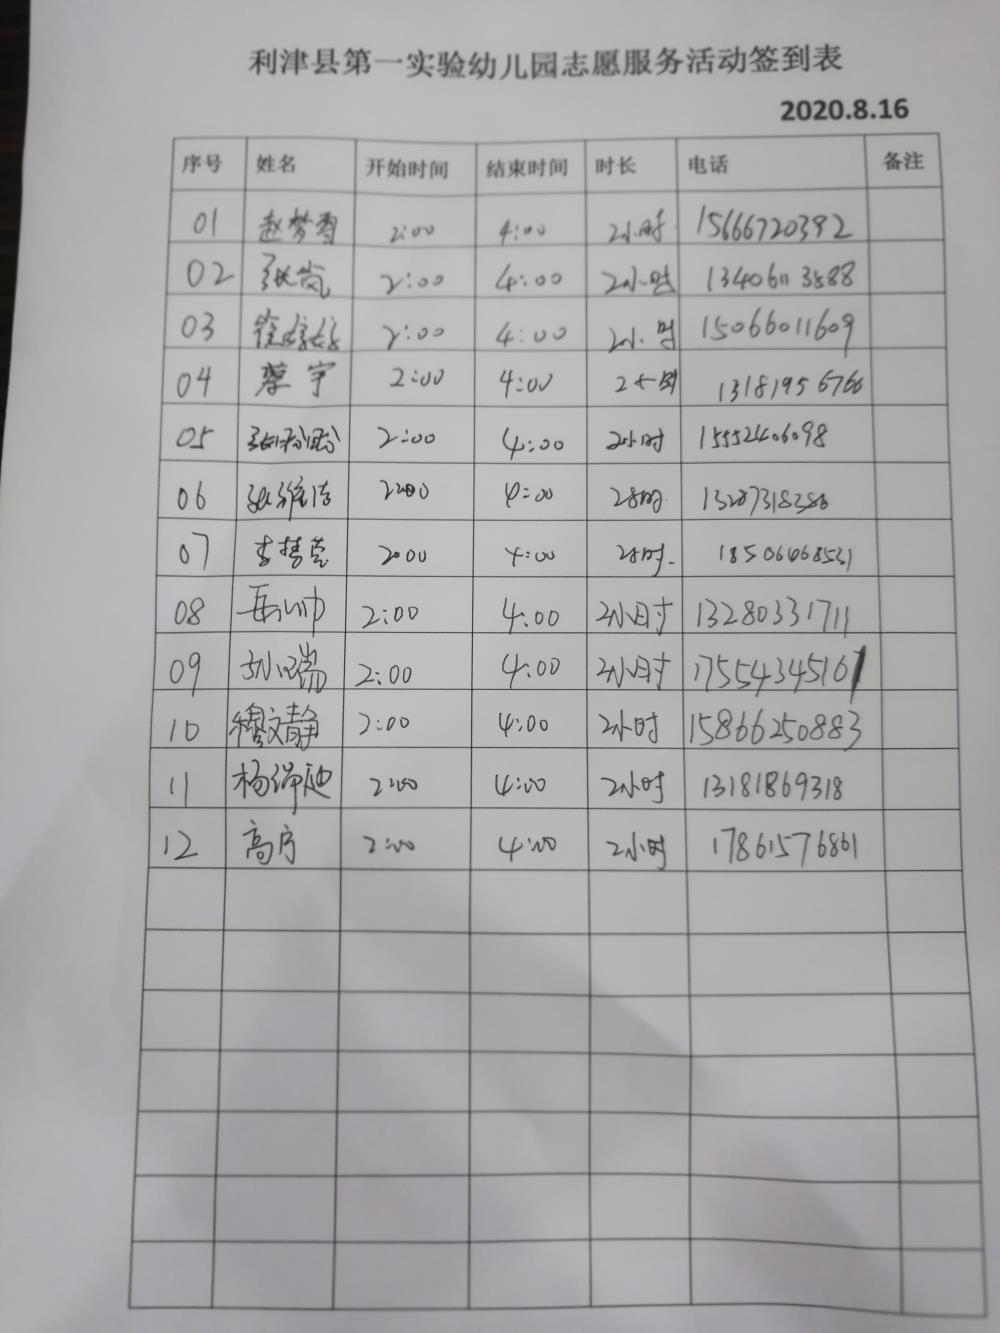 利津县第一实验幼儿园志愿服务活动签到表
2020.8.16
序号 姓名 开始时间 结束时间 时长 电话 备注
01 赵梦雪 2:00 4:00 2小时 15666720392
02 张岚 2:00 4:00 2小时 13406113588
03 2:00 4:00 2小时 15066011609
04 宇 2:00 4:00 2小时 13181956766
05 2:00 4:00 2小时 15552406098
06 2:00 4:00 2小时 13287318386
07 2:00 4:00 2小时 18506468531
08 岳小帅 2:00 4:00 2小时 13280331711
09 2:00 4:00 2小时 17554345167
10 穆文静 2:00 4:00 2小时 15866250883
11 杨 2:00 4:00 2小时 13181869318
12 高 2:00 4:00 2小时 17861576861